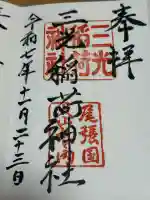 奉拝
三光稲荷神社
令和七年十一月二十三日
三光
稲荷
神社
尾張国